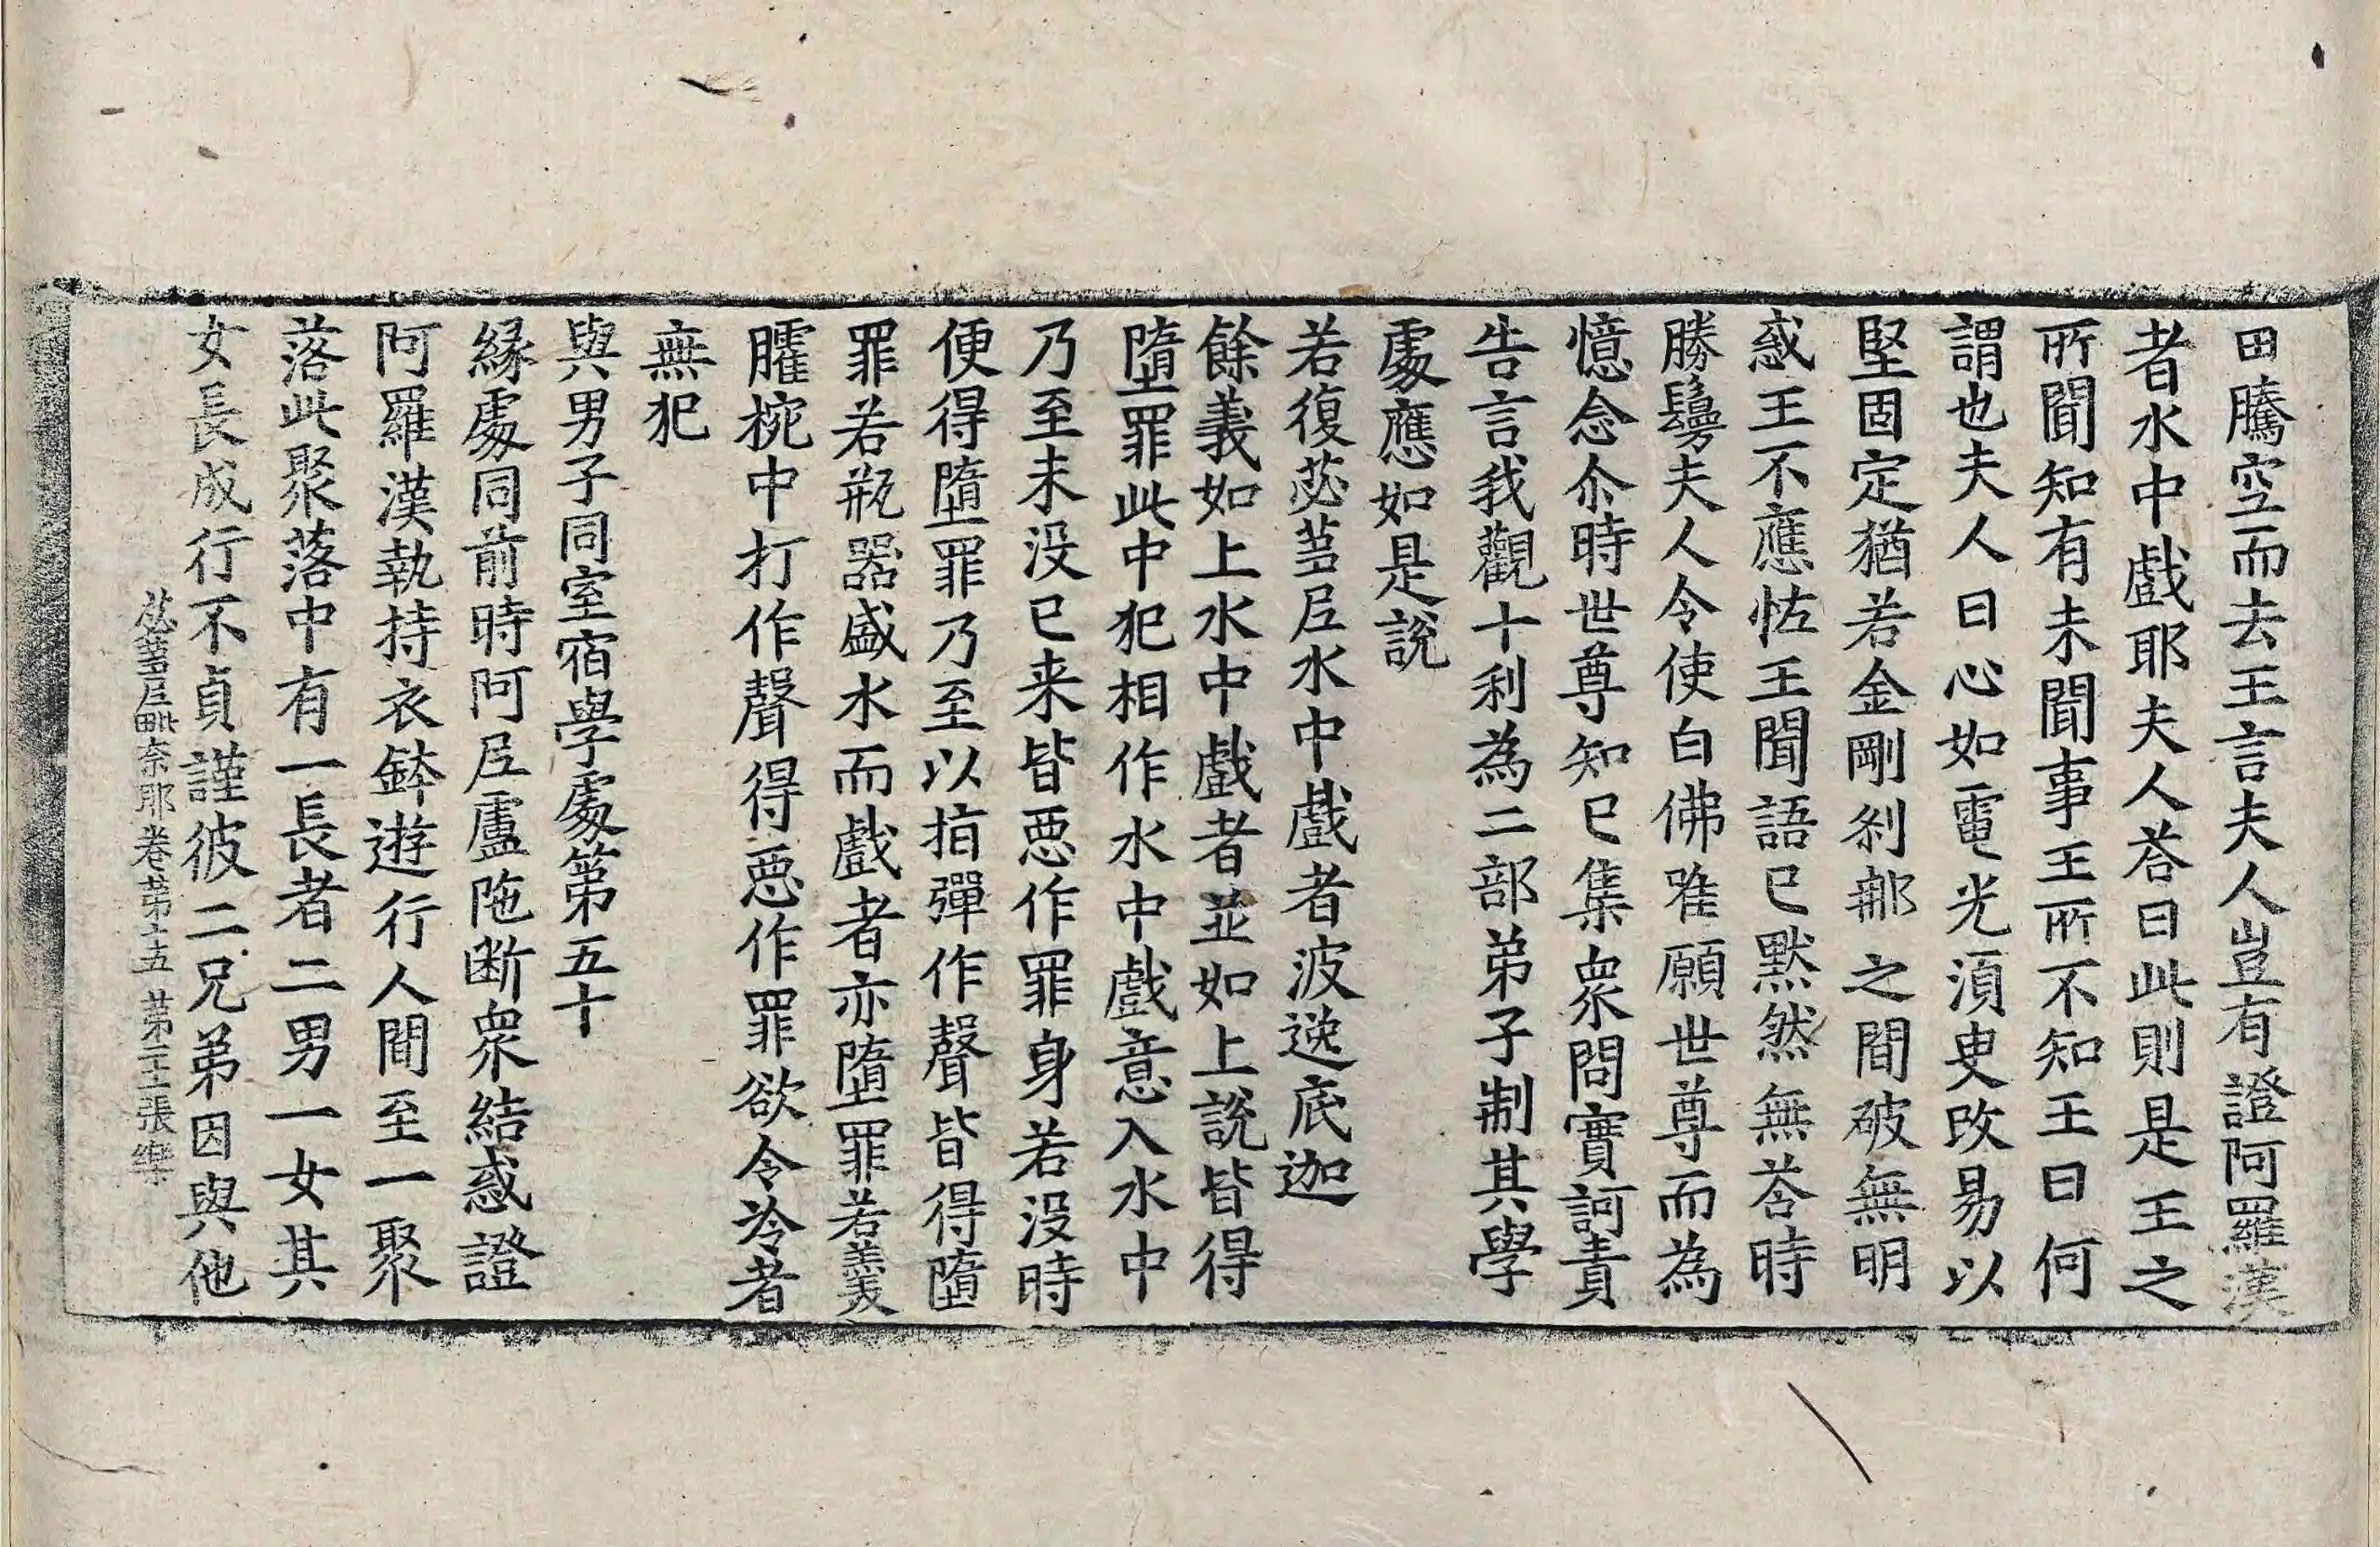 田騰空而去王言夫人豈有證阿羅漢
者水中戲耶夫人荅曰此則是王之
所聞知有未聞事王所不知王曰何
謂也夫人曰心如電光湏臾改易以
堅固定猶若金剛刹那之間破無明
惑王不應恠王聞語已黙然無荅時
勝鬘夫人令使白佛唯願世尊而為
憶念尒時世尊知已集衆問實訶責
告言我觀十利為二部弟子制其學
處應如是說
若復苾蒭尼水中戲者波逸底迦
餘義如上水中戲者並如上說皆得
墮罪此中犯相作水中戲意入水中
乃至未没已来皆惡作罪身若没時
便得墮罪乃至以指彈作聲皆得墮
罪若瓶器盛水而戲者亦墮罪若羹
臛椀中打作聲得惡作罪欲令冷者
無犯
與男子同室宿學處第五十
緣處同前時阿尼盧陁断衆結惑證
阿羅漢執持衣鉢遊行人間至一聚
落此聚落中有一長者二男一女其
女長成行不貞謹彼二兄弟因與他
苾蒭尼毗奈耶卷第十五 第二十一張 樂